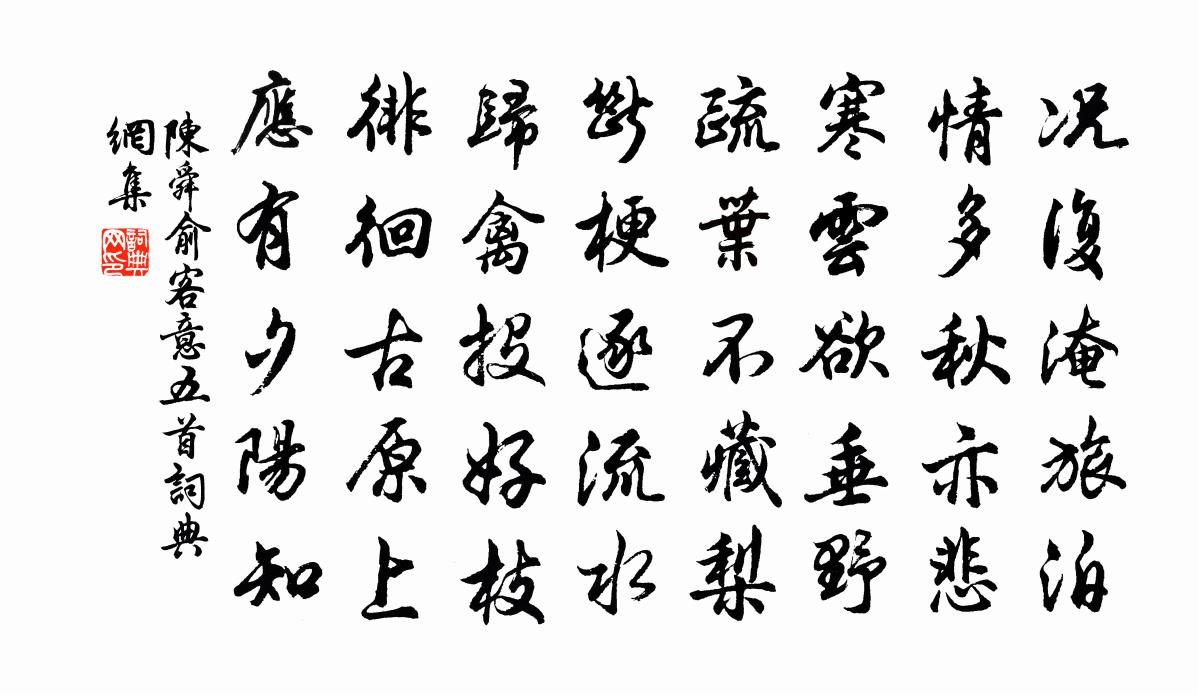 况復淹旅泊
情多秋亦悲
寒雲欲垂野
疏葉不藏梨
斷梗逐流水
歸禽投好枝
徘徊古原上
應有夕陽知
陳舜俞客意五首詞典
網集
詞典網印